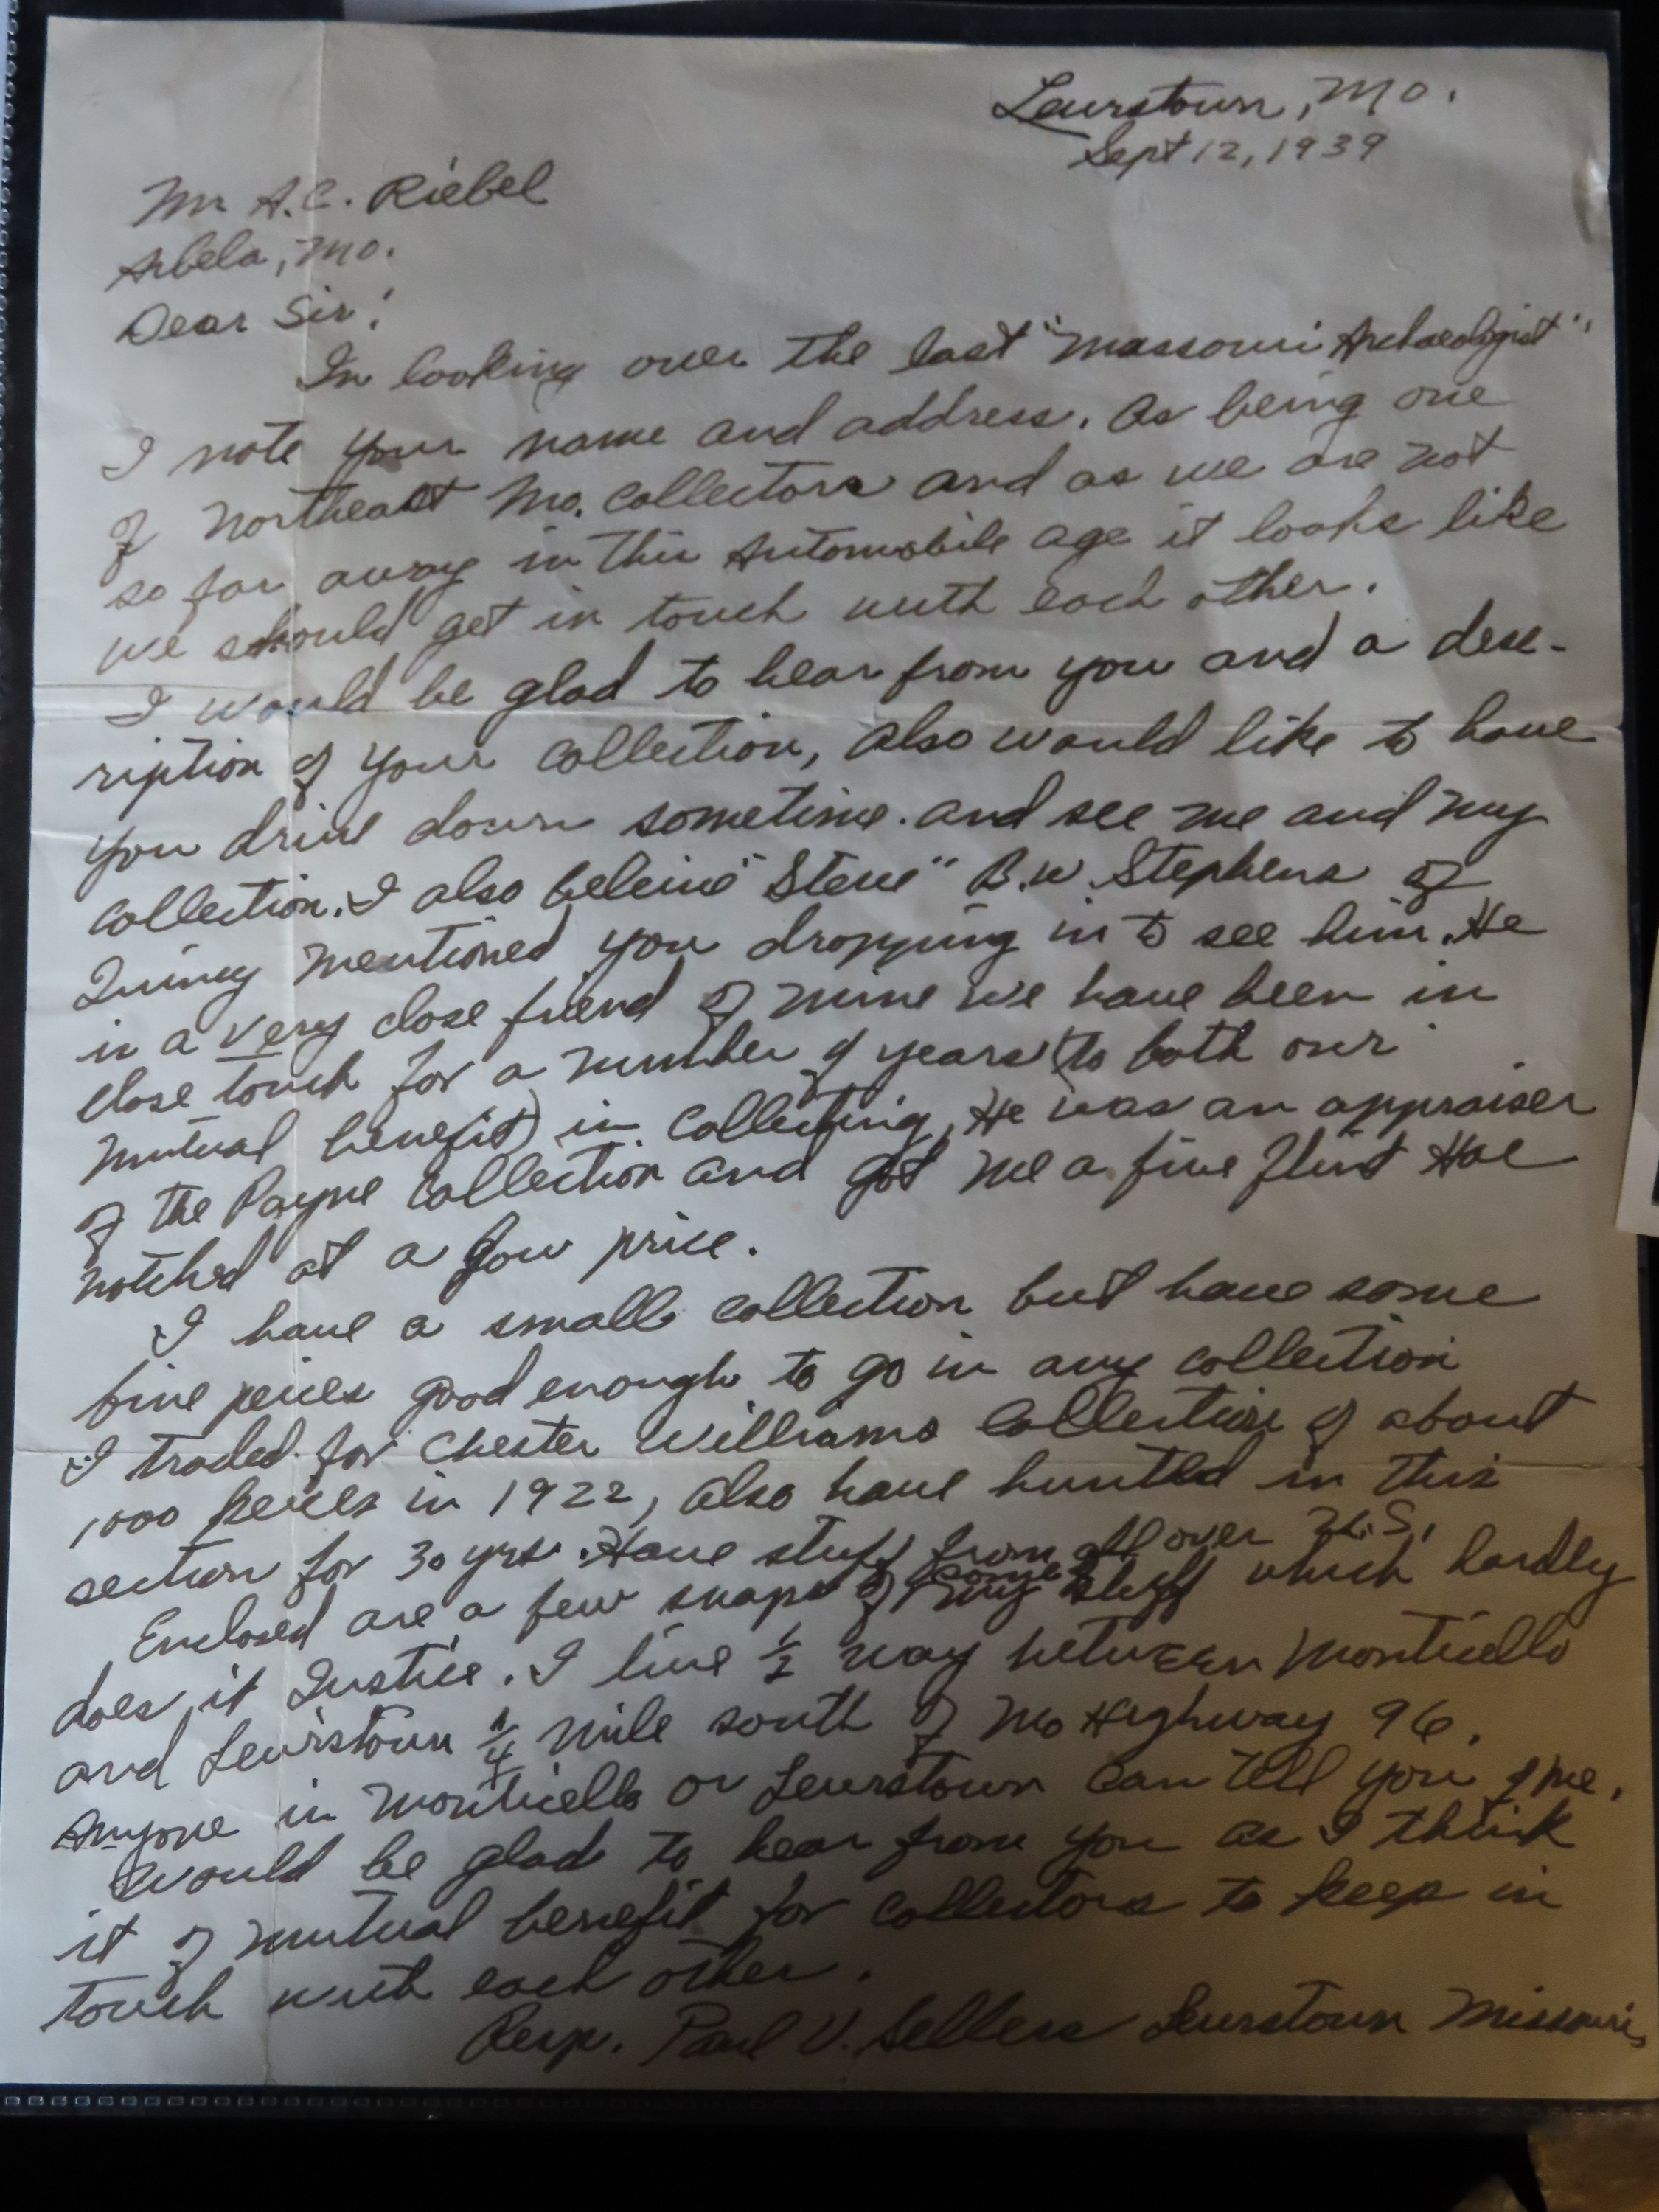 Lewistown, Mo.
Sept 12, 1939
Mr A.C. Riebel
Arbela, Mo.
Dear Sir:
In looking over the last "Missouri Archaeologist",
I note your name and address. As being one
of Northeast Mo. Collectors and as we are not
so far away in this Automobile age it looks like
we should get in touch with each other.
I would be glad to hear from you and a desc-
ription of your collection, also would like to have
you drive down sometime and see me and my
collection. I also beleive "Steve" B.W. Stephens of
Quincy mentioned you dropping in to see him. He
is a very close friend of mine we have been in
close touch for a number of years (to both our
mutual benefit) in collecting. He was an appraiser
of the Payne Collection and got me a fine flint Hoe
notched at a low price.
I have a small collection but have some
fine peices good enough to go in any collection
I traded for Chester Williams Collection of about
1000 peices in 1922, also have hunted in this
section for 30 yrs. Have stuff from all over U.S.
Enclosed are a few snaps of some my stuff which hardly
does it Justice. I live 1/2 way between Monticello
and Lewistown 1/4 mile south of Mo Highway 96.
Anyone in Monticello or Lewistown can tell you of me.
Would be glad to hear from you as I think
it of mutual benefit for collectors to keep in
touch with each other.
Resp. Paul V. Sellers Lewistown Missouri,